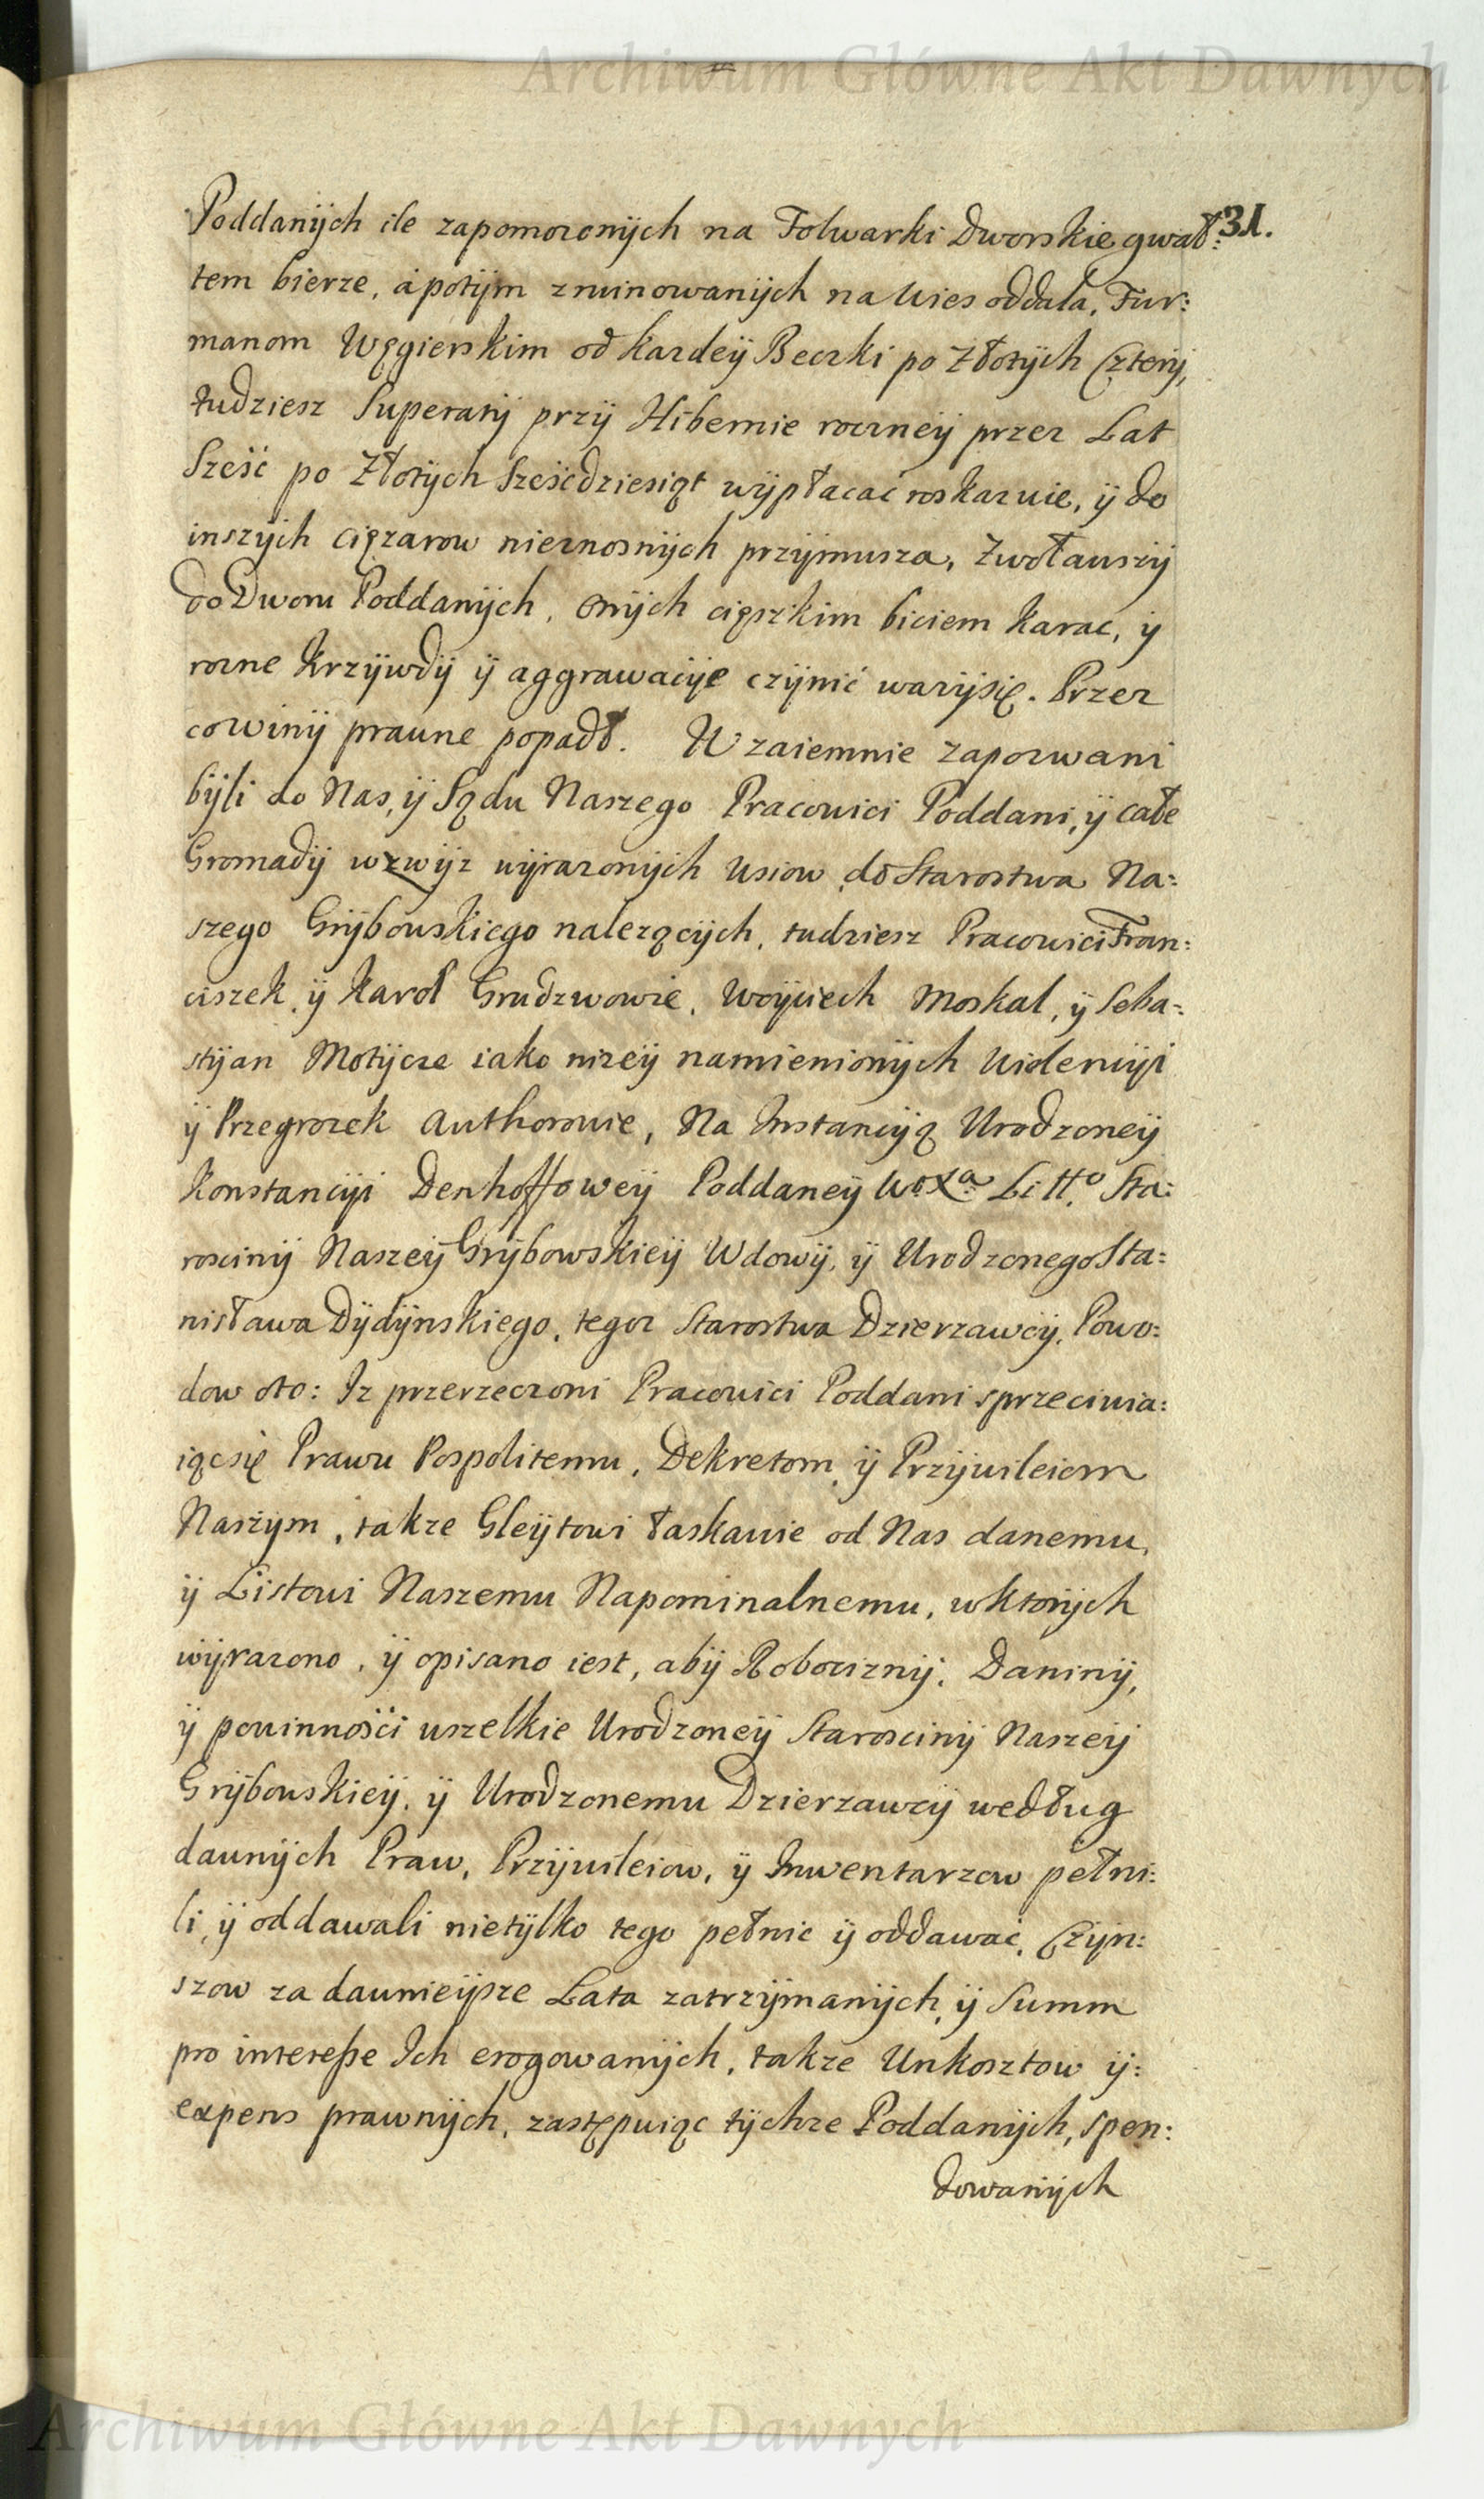 Archiwum Główne Akt Dawnych
31.
Poddanÿch ile zapomozonÿch na Folwarki Dworskie gwał:
tem bierze, á potÿm zruinowanÿch na Wies oddala, Fur:
manom Węgierskim od kazdeÿ Beczki po Złotÿch Czterÿ,
tudziesz Superatÿ przÿ Hibernie roczneÿ przez Lat
Sześć po Złotÿch Sześcdziesiąt wÿpłacać roskazuie, ÿ do
inszÿch cięzarow nieznosnÿch przÿmusza, Zwoławszÿ
do Dworu Poddanÿch, onÿch cięszkim biciem karac, ÿ
rozne krzÿwdÿ ÿ aggrawacÿe czÿnić wazÿsię. Przez
co winÿ prawne popadł. Wzaiemnie zapozwani
bÿli do Nas, ÿ Sądu Naszego Pracowici Poddani, ÿ całe
Gromadÿ wzwÿz wÿrazonÿch Wsiow do Starostwa Na:
szego Grÿbowskiego nalezącÿch, tudziesz Pracowici Fran:
ciszek ÿ Karol Grudzwowie, Woÿciech Moskal, ÿ Seba:
stÿan Motÿcze iako nizeÿ namienionÿch Widencÿi
ÿ Przegrozek Authorowie, Na Instancÿą Urodzoneÿ
Konstancÿi Denhoffoweÿ Poddaneÿ Woxa. Litto. Sta:
roscinÿ Naszeÿ Grÿbowskieÿ Wdowÿ, ÿ Urodzonego Sta:
nisława Dÿdÿnskiego, tegoz Starostwa Dzierzawcÿ, Powo:
dow oto: Iz przerzeczoni Pracowici Poddani sprzeciwia:
iącsię Prawu Pospolitemu, Dekretom, ÿ Przÿwileiom
Naszÿm, takze Gleÿtowi łaskawie od Nas danemu,
ÿ Listowi Naszemu Napominalnemu, wktorÿch
wÿrazono, ÿ opisano iest, abÿ Robociznÿ, Daninÿ,
ÿ powinnośći wszelkie Urodzoneÿ Staroscinÿ Naszeÿ
Grÿbowskieÿ, ÿ Urodzonemu Dzierzawcÿ według
dawnÿch Praw, Przÿwileiow, ÿ Inwentarzow pełni:
li, ÿ oddawali nietÿlko tego pełnic ÿ oddawać, Czÿn:
szow za dawnieÿsze Lata zatrzÿmanÿch, ÿ Summ
pro interesse Ich erogowanÿch, takze Unkosztow ÿ:
expens prawnÿch, zastępuiąc tÿchze Poddanÿch, spen:
dowanÿch
Archiwum Główne Akt Dawnych